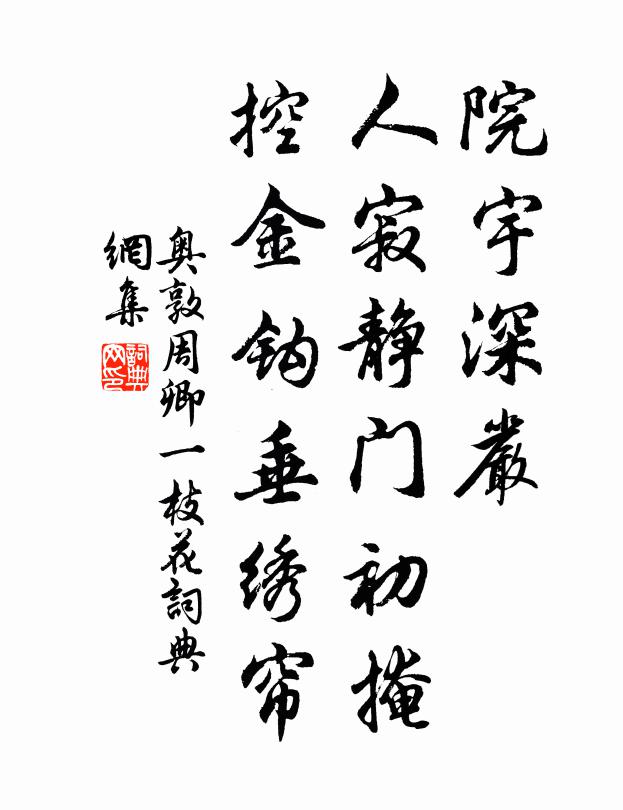 院宇深嚴
人寂静门初掩
控金钩垂绣帘
奥敦周卿一枝花詞典
網集
詞典
网印